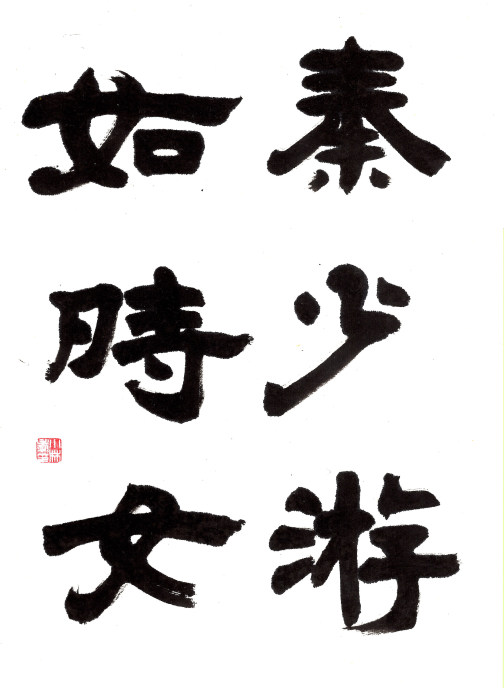 秦少游
如時女